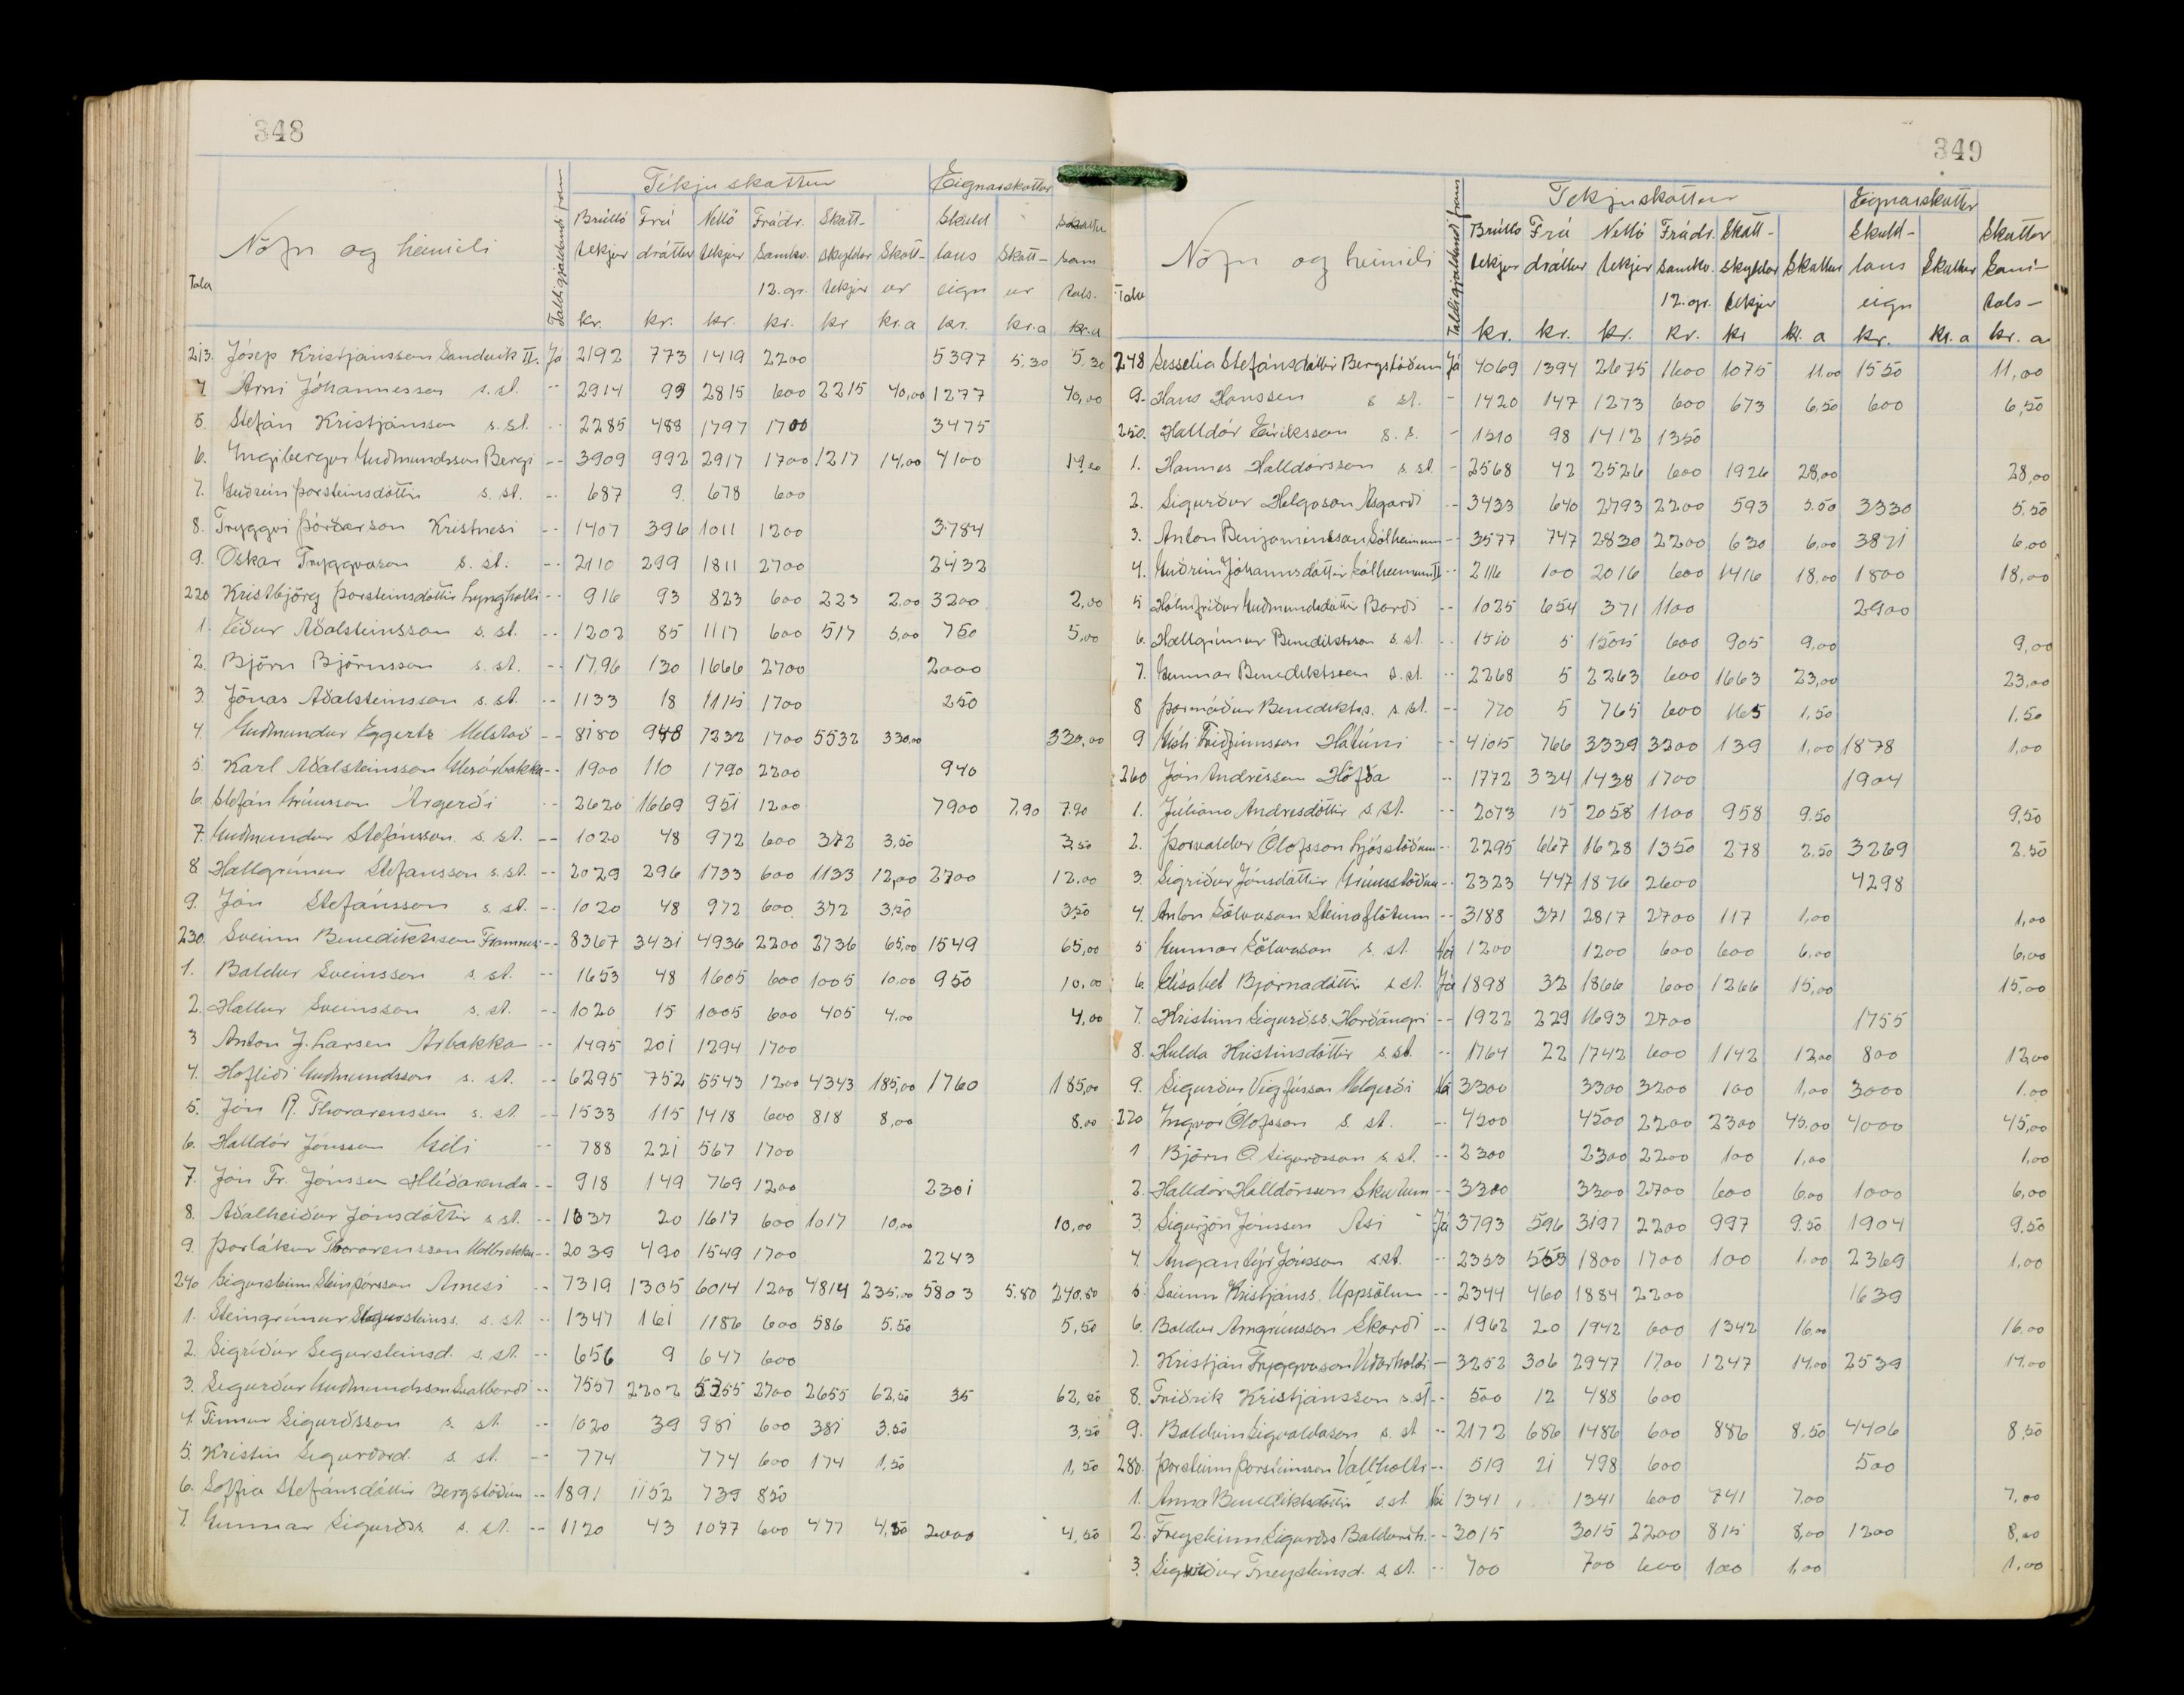 348
Tekjuskattur Eignarskattur
Tala Nöfn og heimili Taldi gjaldandi fram Brúttó tekjur kr. Frádráttur kr. Nettó tekjur kr. Frádr. samkv. 12. gr. kr. Skattskyldar tekjur kr Skattur kr. a Skuldlaus eign kr. Skattur kr. a Skattur samtals. kr. a
213. Jósep Kristjánsson Sandvik II. Já 2192 773 1419 2200 5397 5,30 5,30
4. Árni Jóhannesson s. st. -- 2914 99 2815 600 2215 40,00 1277 40,00
5. Stefán Kristjánsson s. st. -- 2285 488 1797 1700 3475
6. Yngibergur Guðmundsson Bergi -- 3909 992 2917 1700 1217 14,00 4100 14,00
7. Guðrún Þorsteinsdóttir s. st. -- 687 9 678 600
8. Tryggvi Þórðarson Kristnesi -- 1407 396 1011 1200 3784
9. Óskar Tryggvason s. st. -- 2110 299 1811 2700 2432
220 Kristbjörg Þorsteinsdóttir Lyngholti -- 916 93 823 600 223 2,00 3200 2,00
1. Eiður Aðalsteinsson s. st. -- 1202 85 1117 600 517 5,00 750 5,00
2. Björn Björnsson s. st. -- 1796 130 1666 2700 2000
3. Jónas Aðalsteinsson s. st. -- 1133 18 1115 1700 250
4. Guðmundur Eggerts Melstað -- 8180 948 7232 1700 5532 330,00 330,00
5. Karl Aðalsteinsson -- 1900 110 1790 2200 940
6. Stefán Grímsson Árgerði -- 2620 1669 951 1200 7900 7,90 7,90
7. Guðmundur Stefánsson s. st. -- 1020 48 972 600 372 3,50 3,50
8 Hallgrímur Stefánsson s. st. -- 2029 296 1733 600 1133 12,00 2700 12,00
9. Jón Stefánsson s. st. -- 1020 48 972 600 372 3,50 3,50
230. Sveinn Benediktsson Framnesi -- 8367 3431 4936 2200 2736 65,00 1549 65,00
1. Baldur Sveinsson s. st. -- 1653 48 1605 600 1005 10,00 950 10,00
2. Hallur Sveinsson s. st. -- 1020 15 1005 600 405 4,00 4,00
3 Anton J. Larsen Árbakka -- 1495 201 1294 1700
4. Hafliði Guðmundsson s. st. -- 6295 752 5543 1200 4343 185,00 1760 185,00
5. Jón R. Thorarensen s. st. -- 1533 115 1418 600 818 8,00 8,00
6. Halldór Jónsson Gili -- 788 221 567 1700
7. Jón Fr. Jónsson Hlíðarenda -- 918 149 769 1200 2301
8. Aðalheiður Jónsdóttir s. st. -- 1637 20 1617 600 1017 10,00 10,00
9. Þorlákur Thorarensson -- 2039 490 1549 1700 2243
240 Sigursteinn Steinþórsson Arnesi -- 7319 1305 6014 1200 4814 235,00 5803 5.80 240.80
1. Steingrímur Sigursteinss. s. st. -- 1347 161 1186 600 586 5.50 5,50
2. Sigríður Sigursteinsd. s. st. -- 656 9 647 600
3. Sigurður Guðmundsson Svalbarði -- 7557 2202 5355 2700 2655 62,50 35 62,50
4. Finnur Sigurðsson s. st. -- 1020 39 981 600 381 3,50 3,50
5. Kristín Sigurðard. s. st. -- 774 774 600 174 1,50 1,50
6. Soffia Stefánsdóttir Bergstöðum -- 1891 1152 739 850
7. Gunnar Sigurðss. s. st. -- 1120 43 1077 600 477 4,50 2000 4,50
349
Tekjuskattur Eignarskattur
Tala Nöfn og heimili Taldi gjaldandi fram Brúttó tekjur kr. Frádráttur kr. Nettó tekjur kr. Frádr. samkv. 12. gr. kr. Skattskyldar tekjur kr Skattur kr. a Skuldlaus eign kr. Skattur kr. a Skattur samtals kr. a
248 Sesselia Stefánsdóttir Bergstöðum Já 4069 1394 2675 1600 1075 11.00 1550 11,00
9. Hans Hanssen s st. - 1420 147 1273 600 673 6.50 600 6,50
250. Halldór Eiríksson s. s. - 1510 98 1412 1350
1. Hannes Halldórsson s st - 2568 42 2526 600 1926 28,00 28,00
2. Sigurður Helgason Asgarði -- 3433 640 2793 2200 593 5.50 3330 5.50
3. Anton Benjaminsson Sólheimum -- 3577 747 2830 2200 630 6,00 3871 6,00
4. Guðrún Jóhannsdóttir Sólheimum II -- 2116 100 2016 600 1416 18,00 1800 18,00
5 Hólmfríður Guðmundsdóttir Barði -- 1025 654 371 1100 2900
6. Hallgrímur Benediktsson s. st. -- 1510 5 1505 600 905 9,00 9,00
7. Gunnar Benediktsson s. st. -- 2268 5 2263 600 1663 23,00 23,00
8 Þormóður Benediktss. s. st. -- 770 5 765 600 165 1,50 1.50
9 Gísli Friðfinnsson Hátúni -- 4105 766 3339 3200 139 1,00 1878 1,00
260 Jón Andrésson Höfða -- 1772 334 1438 1700 1904
1. Júliana Andrésdóttir s. st. -- 2073 15 2058 1100 958 9.50 9,50
2. Þorvaldur Ólafsson -- 2295 667 1628 1350 278 2.50 3269 2.50
3. Sigríður Jónsdóttir Grímsstöðum -- 2323 447 1876 2600 4298
4. Anton Sölvason Steinaflötum -- 3188 371 2817 2700 117 1,00 1,00
5 Gunnar Sölvason s. st. Nei 1200 1200 600 600 6,00 6,00
6. Elísabet Bjarnadóttir s st. Já 1898 32 1866 600 1266 15,00 15,00
7. Kristinn Sigurðss. Harðangri -- 1922 229 1693 2700 1755
8. Hulda Kristinsdóttir s. st. -- 1764 22 1742 600 1142 12,00 800 12,00
9. Sigurður Vigfússon Melgerði Nei 3300 3300 3200 100 1,00 3000 1.00
270 Ingvar Ólafsson s. st. -- 4500 4500 2200 2300 45.00 4000 45,00
1 Björn O. Sigurðsson s. st. -- 2300 2300 2200 100 1,00 1,00
2. Halldór Halldórsson Skútum -- 3300 3300 2700 600 6,00 1000 6,00
3. Sigurjón Jónsson Ási Já 3793 596 3197 2200 997 9.50 1904 9.50
4. Angantýr Jónsson s.st. -- 2353 553 1800 1700 100 1.00 2369 1,00
5. Kristjánss. Uppsölum -- 2344 460 1884 2200 1639
6. Baldur Arngrímsson Skarði -- 1962 20 1942 600 1342 16,00 16,00
7. Kristján Tryggvason -- 3252 306 2947 1700 1247 14.00 2539 14.00
8. Friðrik Kristjánsson s. st. -- 500 12 488 600
9. Baldvin Sigvaldason s. st -- 2172 686 1486 600 886 8.50 4406 8,50
280. Þorsteinn Þorsteinsson Vallholti -- 519 21 498 600 500
1. Anna Benediktsdóttir s.st. Nei 1341 1341 600 741 7.00 7,00
2. Freysteinn Sigurðss -- 3015 3015 2200 815 8,00 1200 8,00
3. Sigríður Freysteinsd. s. st. -- 700 700 600 100 1,00 1,00